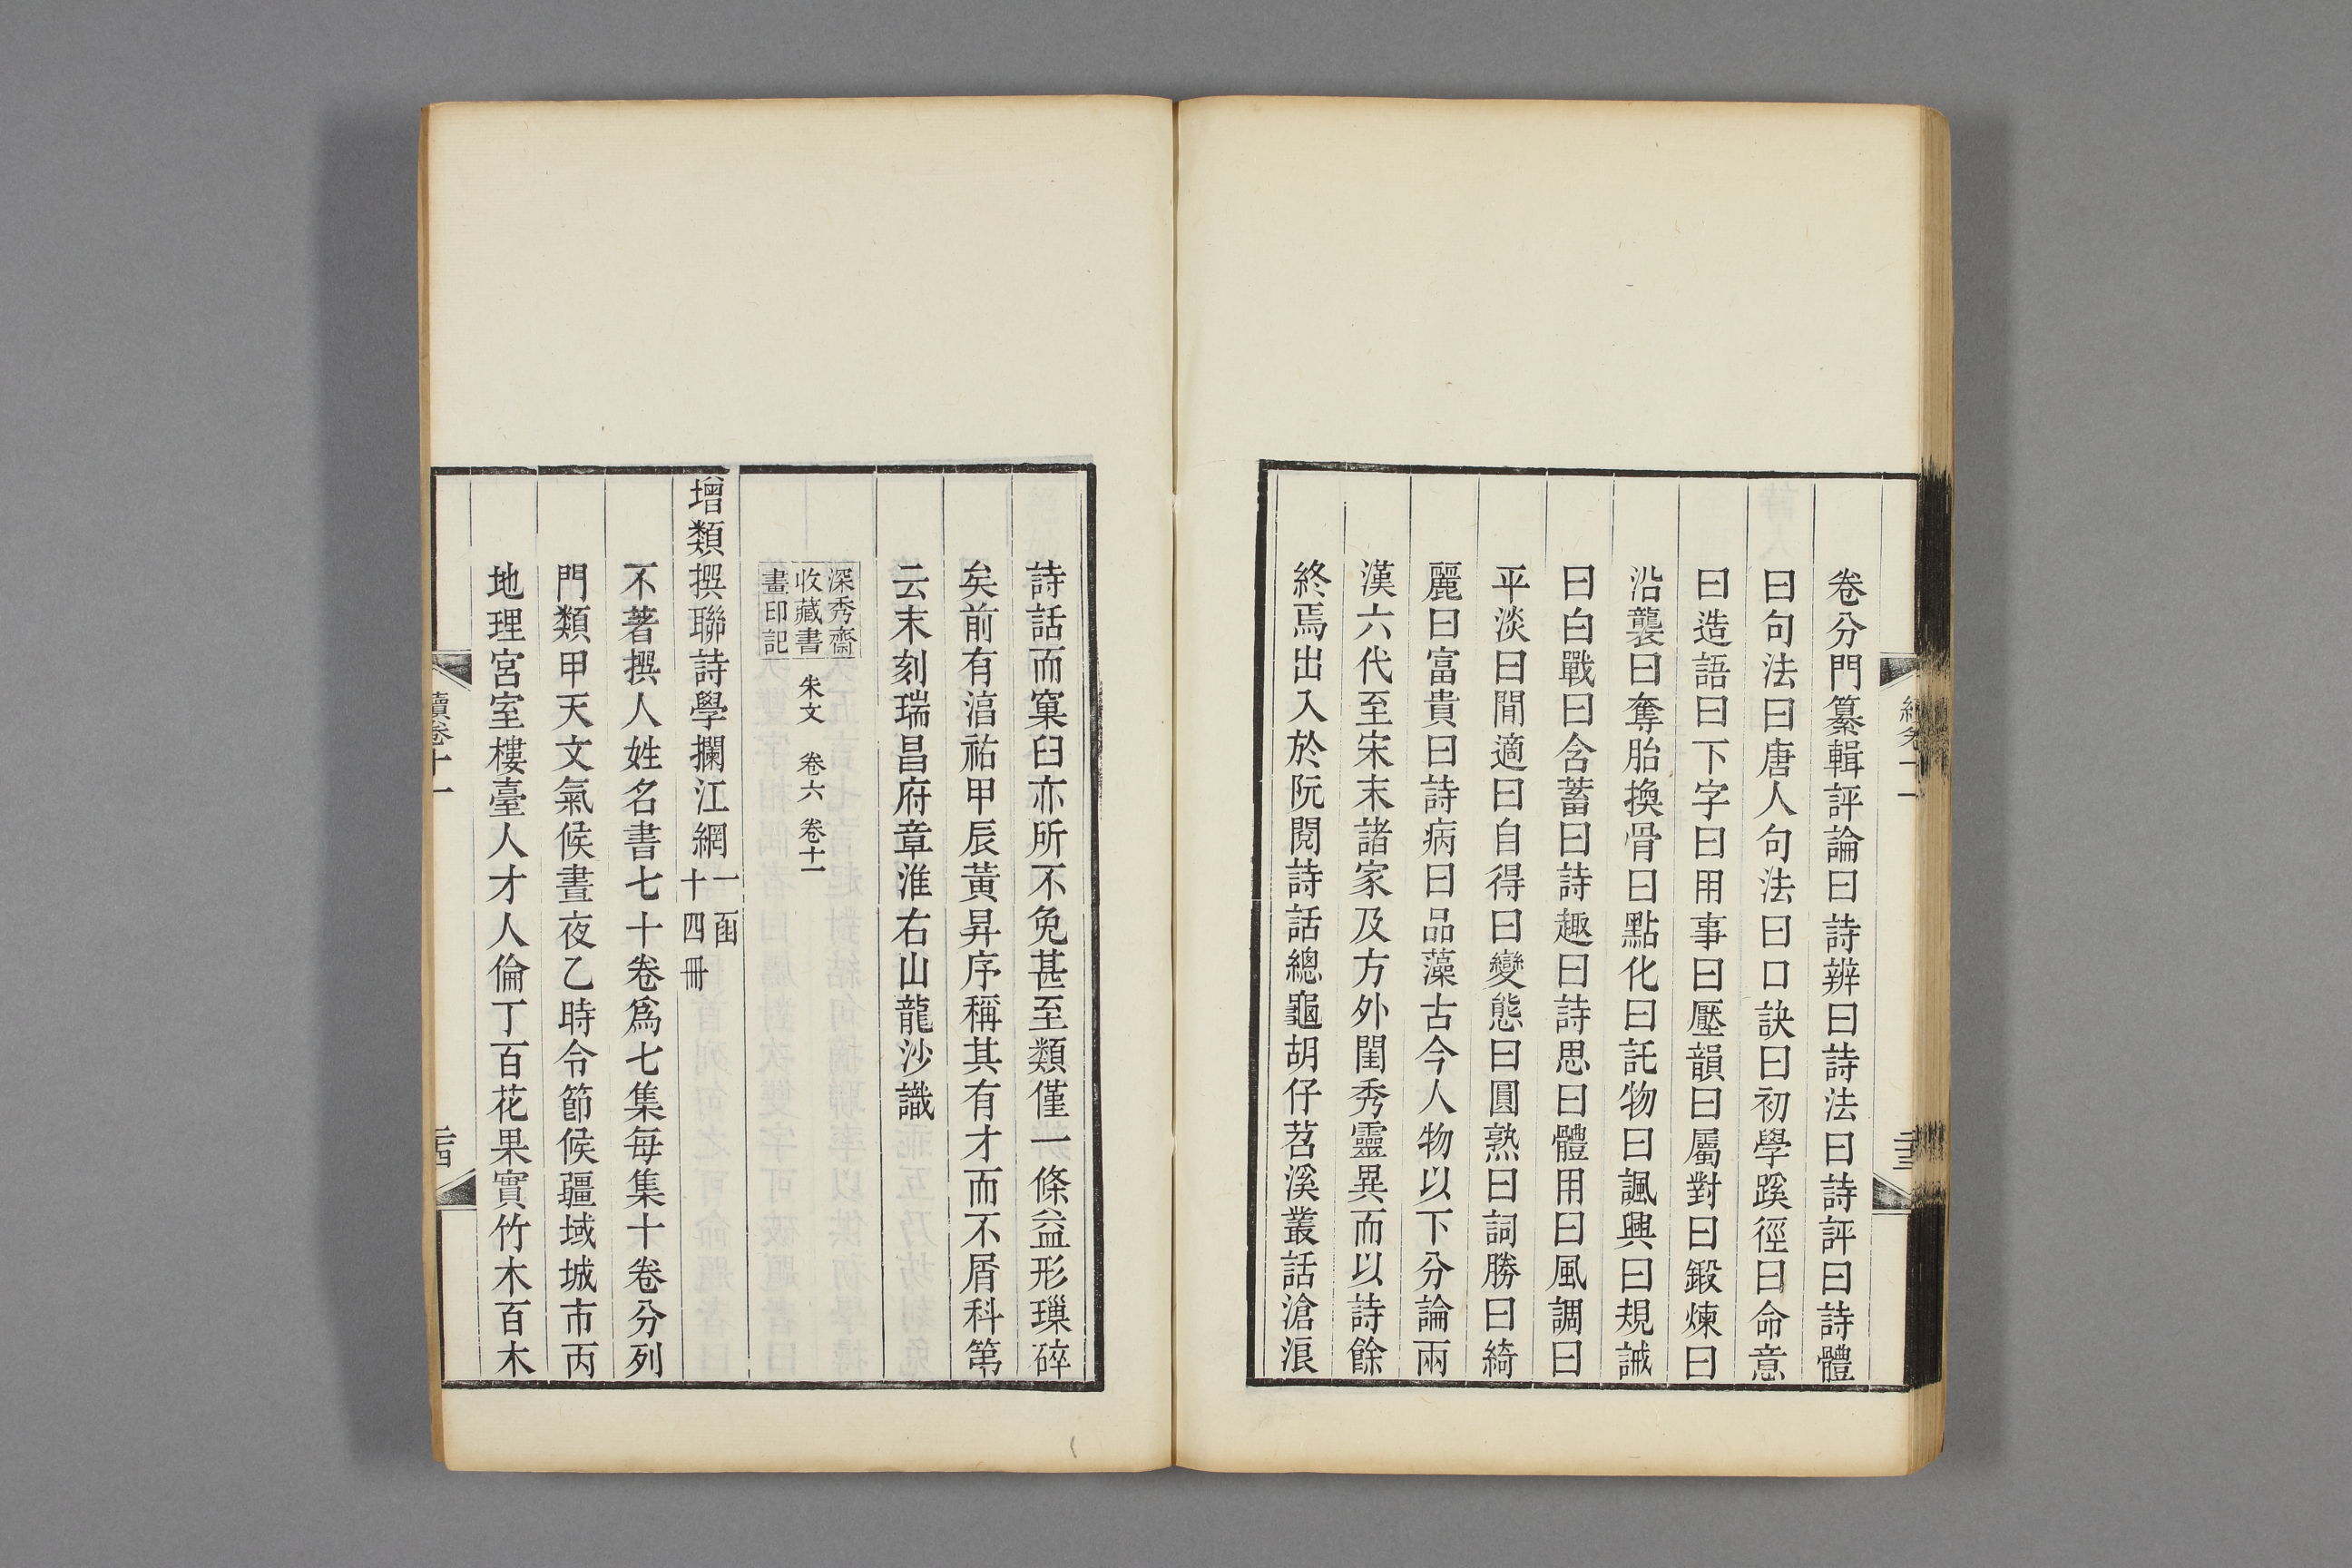 卷分門纂輯評論曰詩辨曰詩法曰詩評曰詩體
曰句法曰唐人句法曰口訣曰初學蹊徑曰命意
曰造語曰下字曰用事曰壓韻曰屬對曰鍛煉曰
沿襲曰奪胎換骨曰點化曰託物曰諷興曰規誡
曰白戰曰含蓄曰詩趣曰詩思曰體用曰風調曰
平淡曰閒適曰自得曰變態曰圓熟曰詞勝曰綺
麗曰富貴曰詩病曰品藻古今人物以下分論兩
漢六代至宋末諸家及方外閨秀靈異而以詩餘
終焉出入於阮閱詩話總龜胡仔苕溪叢話滄浪
詩話而窠臼亦所不免甚至類僅一條益形璅碎
矣前有淯祐甲辰黃昇序稱其有才而不屑科第
云末刻瑞昌府章淮右山龍沙識
深秀齋
收藏書
畫印記
朱文 卷六 卷十一
增類撰聯詩學攔江網
一函
十四冊
不著撰人姓名書七十卷爲七集每集十卷分列
門類甲天文氣候晝夜乙時令節候疆域城市丙
地理宮室樓臺人才人倫丁百花果實竹木百木
續卷十一